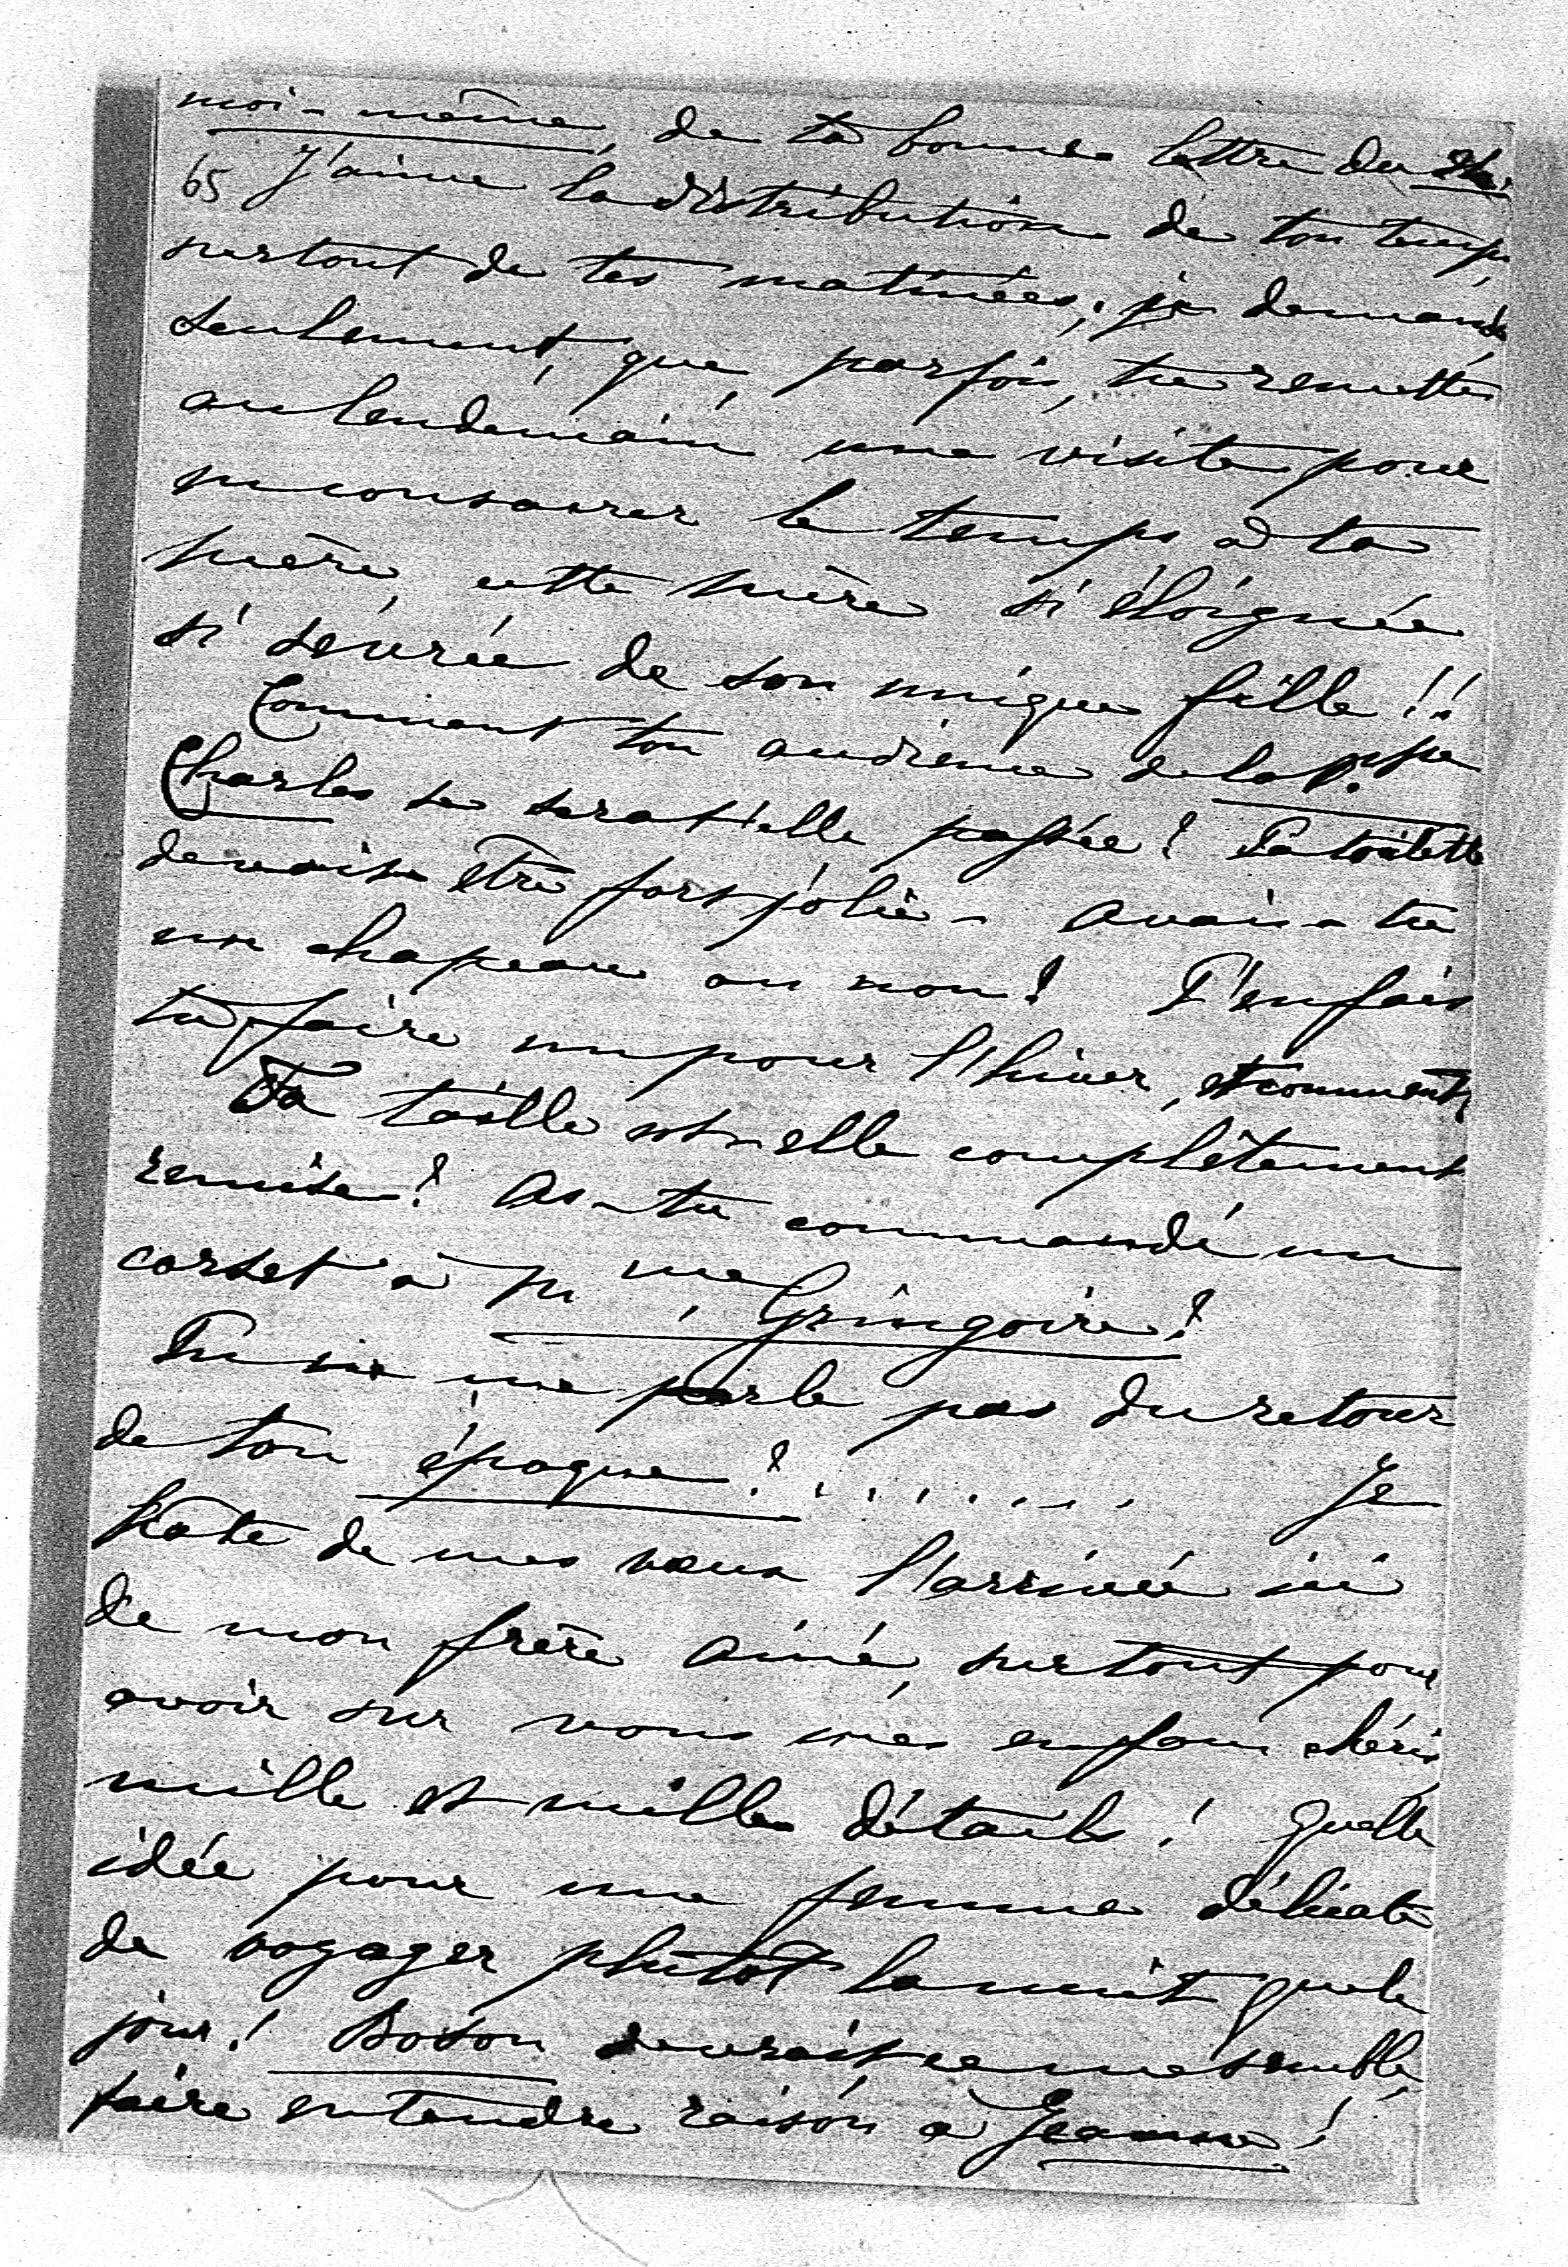 moi-même, de ta bonne lettre du
65 J'aime la distribution de ton temps,
surtout de tes matinées; je demande
seulement, que, parfois, tu remettes
au lendemain une visite pour
en consacrer le temps à ta
mère, cette mère si éloignée
si sevrée de son unique fille!!
Comment ton audience de la P.sse
Charles se serat'elle passée? Ta toilette
devait être fort jolie - avais-tu
un chapeau ou non? T'en fais
tu faire un pour l'hiver, et comment?
Ta taille est-elle complètement
remise? As-tu commandé un
corset à Mme Gringoire?
Tu ne me parle pas du retour
de ton époque?....... Je
hâte de mes vœux l'arrivée ici
de mon frère aimé, surtout pour
avoir sur vous mes enfans chéris,
mille et mille détails! Quelle
idée pour une femme délicate
de voyager plutôt la nuit que le
jour! Boson devrait ce me semble,
faire entendre raison à Jeanne!